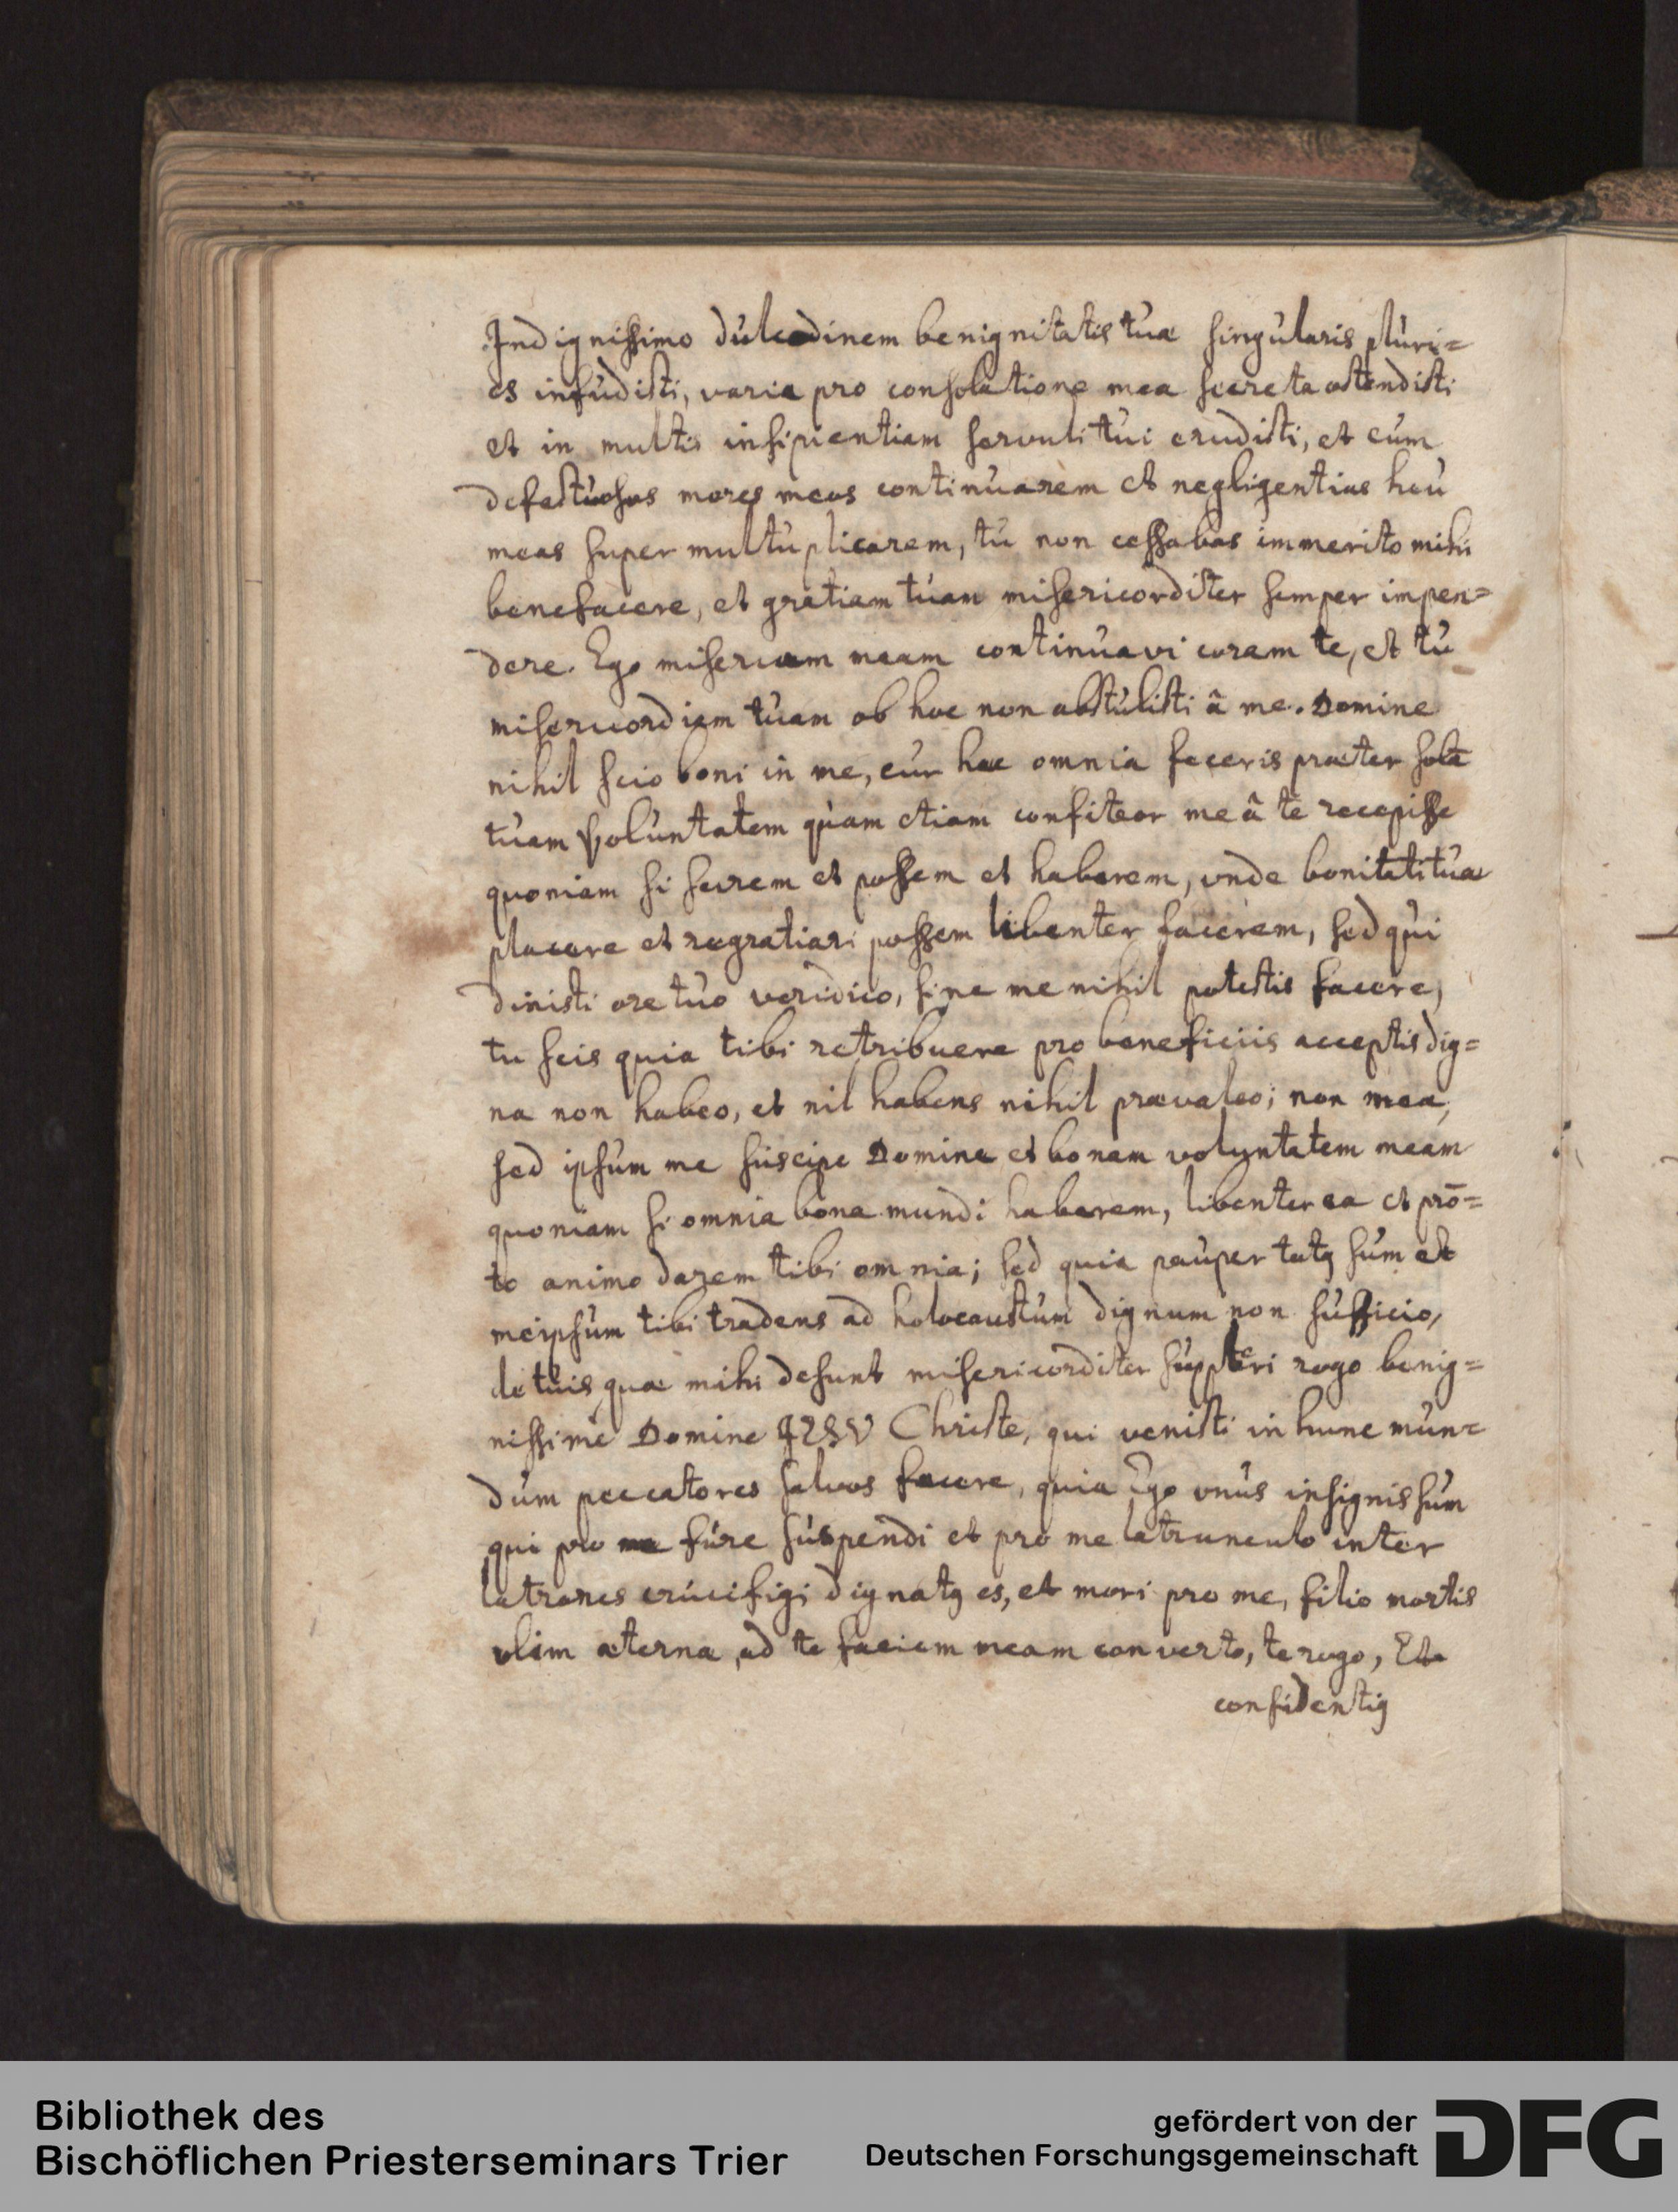 Indignissimo dulcedinem benignitatis tuæ singularis pluri=
es infudisti, varia pro consolatione mea secreta ostendisti
et in multis insipientiam servuli tui erudisti, et cum
defectuosos mores meos continuarem et negligentias heu
meas super multuplicarem, tu non cessabas immerito mihi
benefacere, et gratiam tuam misericorditer semper impen=
dere. Ego miseriam meam continuavi coram te, et tu
misericordiam tuam ob hoc non abstulisti â me. Domine
nihil scio boni in me, cur hæc omnia feceris præter solā
tuam voluntatem quam etiam confiteor me â te recepisse
quoniam si scirem et possem et haberem, vnde bonitati tuæ
placere et regratiari possem libenter facerem, sed qui
dixisti ore tuo veridico, sine me nihil potestis facere,
tu scis quia tibi retribuere pro beneficiis acceptis dig=
na non habeo, et nil habens nihil prævaleo; non mea,
sed ipsum me suscipe Domine et bonam voluntatem meam
quoniam si omnia bona mundi haberem, libenter ea et prō=
to animo darem tibi omnia; sed quia pauper totq sum et
meipsum tibi tradens ad holocaustum dignum non sufficio,
de tuis quæ mihi desunt misericorditer suppleri rogo benig=
nissime Domine IESV Christe, qui venisti in hunc mun=
dum peccatores salvos facere, quia Ego vnus insignis sum
qui pro me fure suspendi et pro me latrunculo inter
latrones crucifigi dignatq es, et mori pro me, filio mortis
olim æternæ, ad te faciem meam converto, te rogo, Et
confidentiq
Bibliothek des
Bischöflichen Priesterseminars Trier
gefördert von der
Deutschen Forschungsgemeinschaft
DFG